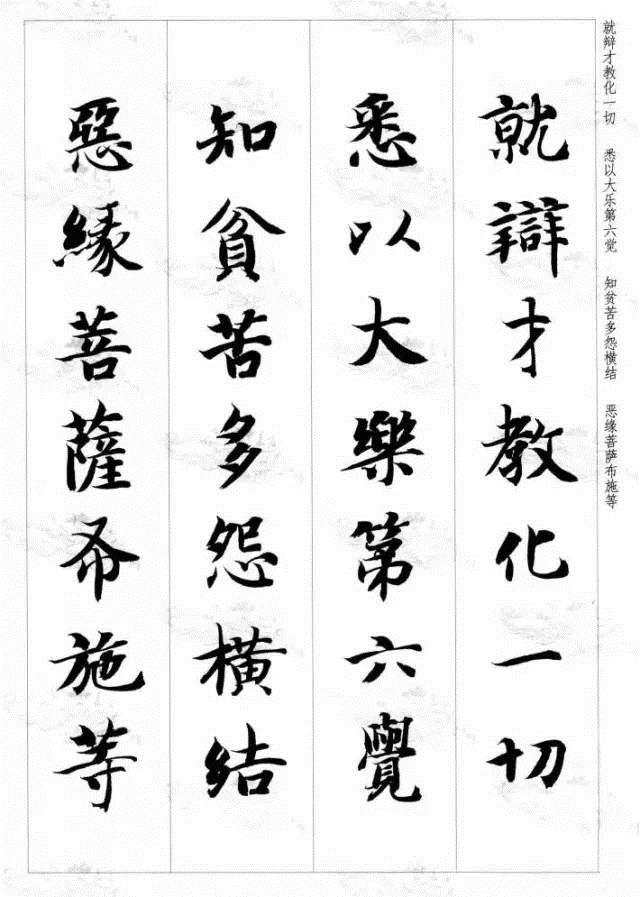 就辩才教化一切 悉以大乐第六觉 知贫苦多怨横结 恶缘菩萨布施等
就辯才教化一切
悉以大樂第六覺
知貧苦多怨橫結
惡緣菩薩布施等